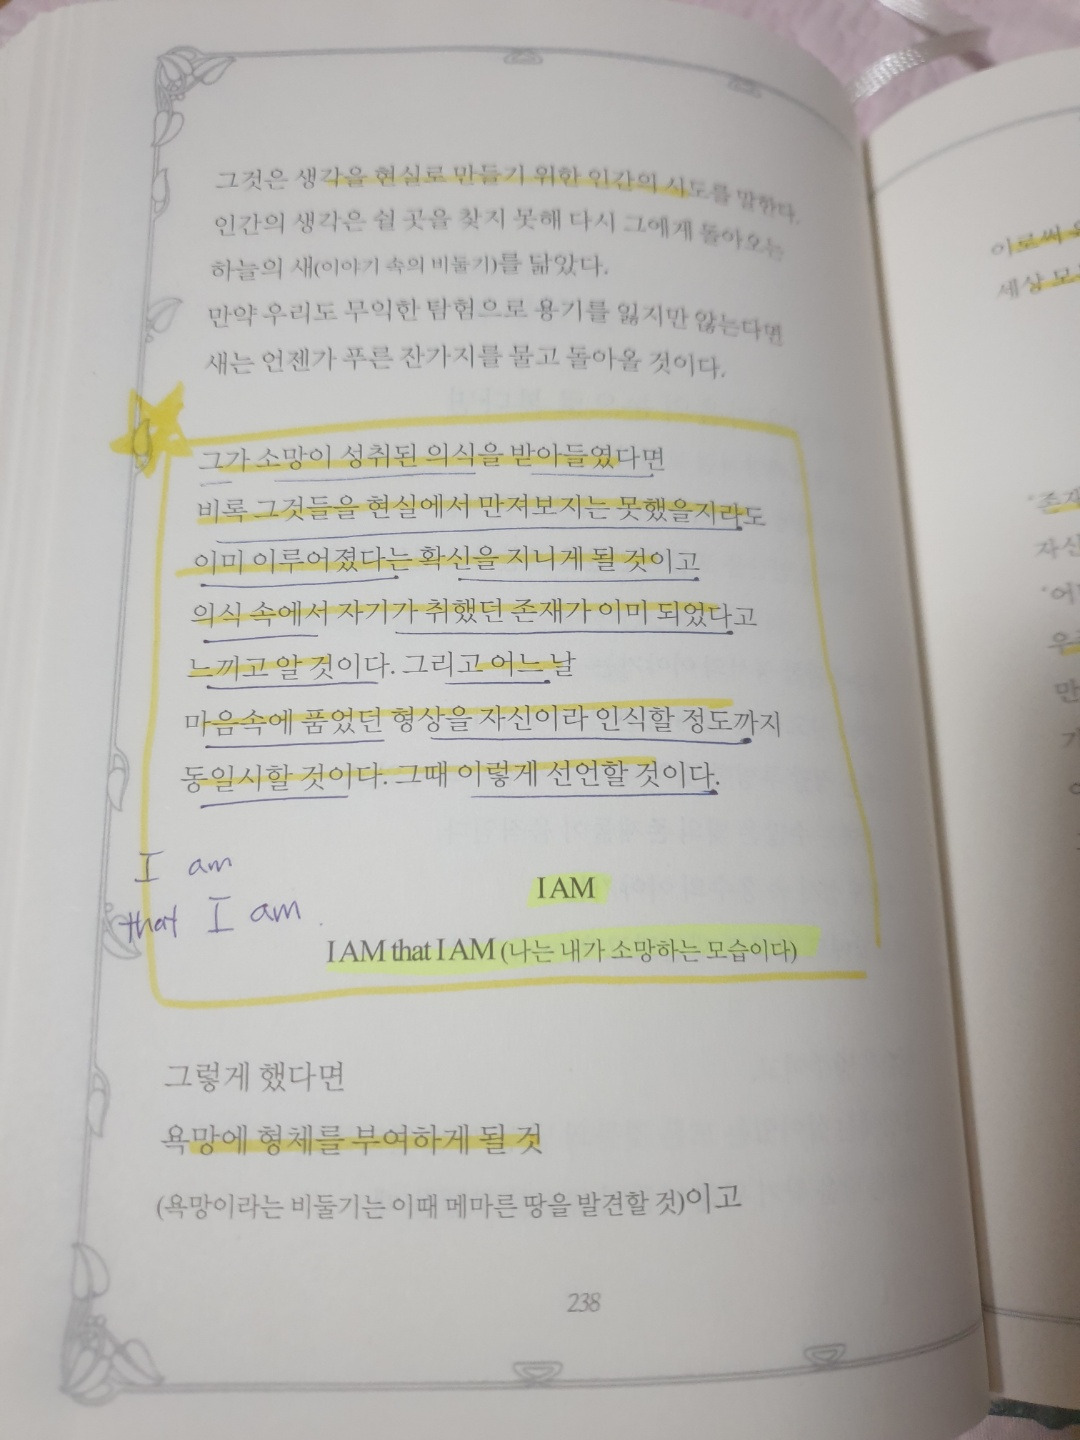 그것은 생각을 현실로 만들기 위한 인간의 시도를 말한다.
인간의 생각은 쉴 곳을 찾지 못해 다시 그에게 돌아오는
하늘의 새(이야기 속의 비둘기)를 닮았다.
만약 우리도 무익한 탐험으로 용기를 잃지만 않는다면
새는 언젠가 푸른 잔가지를 물고 돌아올 것이다.
그가 소망이 성취된 의식을 받아들였다면
비록 그것들을 현실에서 만져보지는 못했을지라도
이미 이루어졌다는 확신을 지니게 될 것이고
의식 속에서 자기가 취했던 존재가 이미 되었다고
느끼고 알 것이다. 그리고 어느 날
마음속에 품었던 형상을 자신이라 인식할 정도까지
동일시할 것이다. 그때 이렇게 선언할 것이다.
I am
that I am.
I AM
I AM that I AM (나는 내가 소망하는 모습이다)
그렇게 했다면
욕망에 형체를 부여하게 될 것
(욕망이라는 비둘기는 이때 메마른 땅을 발견할 것)이고
238
이로써
세상
자신